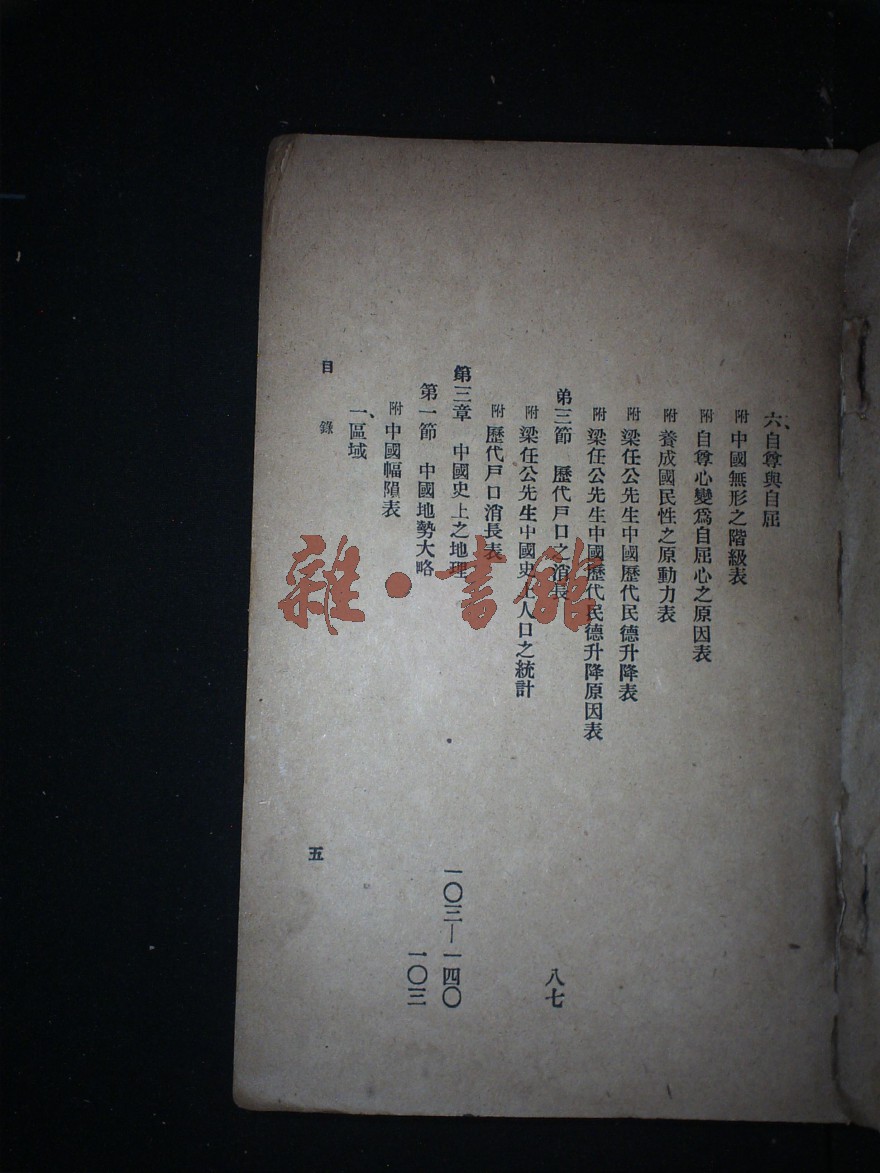 六、自尊與自屈
附 中國無形之階級表
附 自尊心變爲自屈心之原因表
附 養成國民性之原動力表
附 梁任公先生中國歷代民德升降表
附 梁任公先生中國歷代民德升降原因表
第三節 歷代戶口之消長 八七
附 梁任公先生中國史上人口之統計
附 歷代戶口消長表
第三章 中國史上之地理 一〇三—一四〇
第一節 中國地勢大略 一〇三
附 中國幅隕表
一、區域
目錄 五
雜·書館